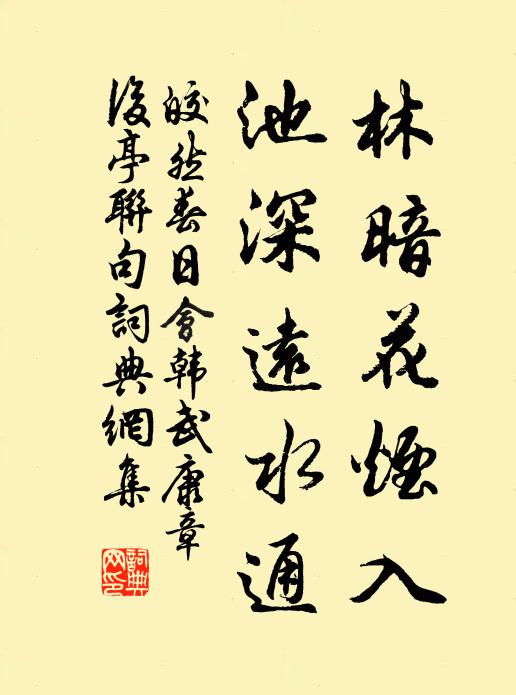 林暗花煙入
池深遠水通
皎然春日會韩武康章
後亭聯句詞典網集
詞典
网印